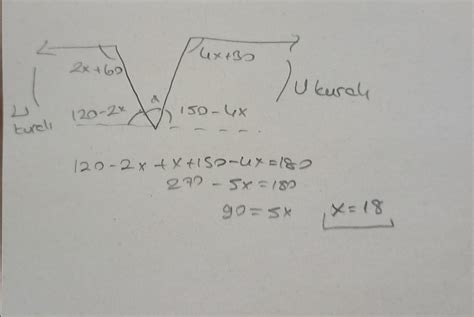 2x+60
4x+30
U
kuralı
120-2x
x
150-4x
U kuralı
120-2x+x+150-4x=180
270-5x=180
90=5x
x=18